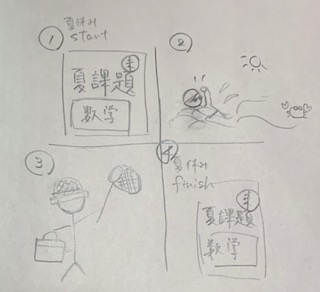 ①
夏休み
start
夏課題
数学
②
③
④
夏休み
finish
夏課題
数学